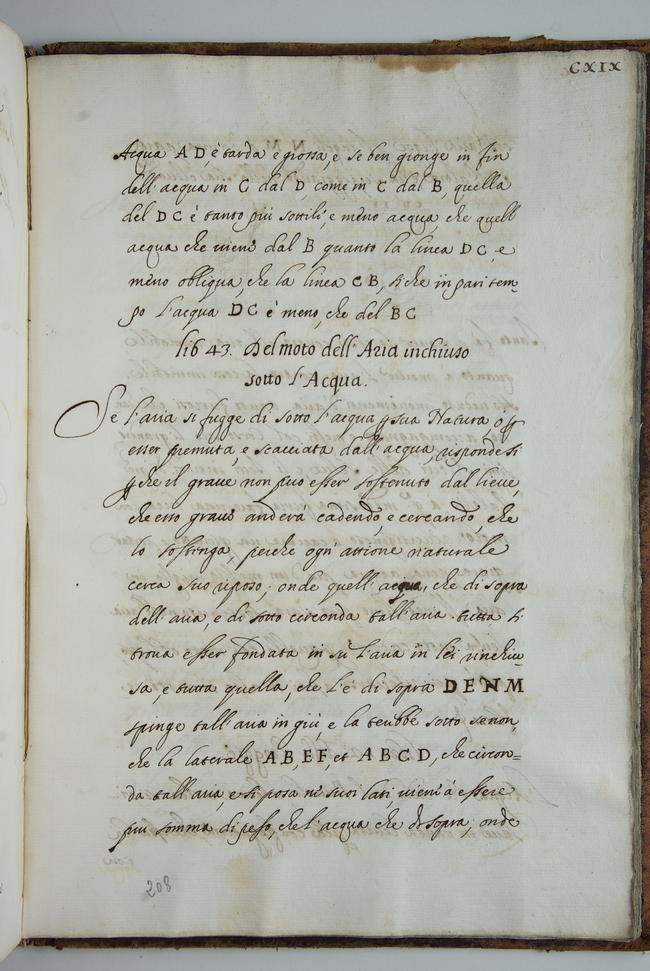 CXIX
Acqua A D, è tarda e grossa, e se ben gionge in fin
dell'acqua in C dal D, come in C dal B, quella
del D C è tanto piu sottili, e meno acqua, che quell
acqua che viene dal B quanto la linea D C, e
meno obliqua, che la linea C B, si che in pari tem-
po l'acqua D C è meno, che del B C
lib 43. Del moto dell'Aria inchiuso
sotto l'Acqua.
Se l'aria si fugge di sotto l'acqua p sua Natura o p
esser premuta, e scacciata dall'acqua, risponde si
p che il grave non puo esser sostenuto dal lieve,
che esso grave anderà cadendo, e cercando, che
lo sostenga, perche ogn'attione naturale
cerca suo riposo, onde quell'acqua, che di sopra
dell'aria, e di sotto circonda tall'aria tutta si
trova esser fondata in sù l'aria in lei rinchiu
sa, e tutta quella, che l'è di sopra D E N M
spinge tall'aria in giù, e la terebbe sotto se non,
che la laterale A B, E F, et A B C D, che circon=
da tall'aria, e si posa ne suoi lati, viene à essere
piu somma di peso, che l'acqua che di sopra, onde
208